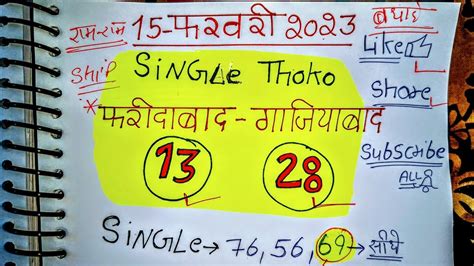 राम-राम 15-फरवरी 2023 बधाई
Like
Ship SINGLE THOKO Share
* फरीदाबाद - गाजियाबाद
Subscribe
13 28 ALL
SINGLE → 76, 56, 69 → सीधे